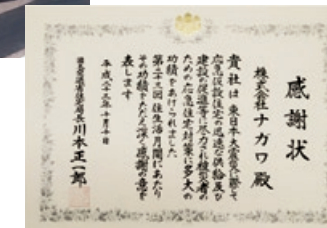 感謝状
株式会社ナガワ殿
貴社は東日本大震災に際して
応急仮設住宅の迅速な供給及び
建設の促進等に尽力され被災者の
ための応急住宅対策に多大の
功績をあげられました
第二十三回住生活月間にあたり
その功績をたたえ深く感謝の意を
表します
平成二十三年十月十日
国土交通省住宅局長川本正一郎